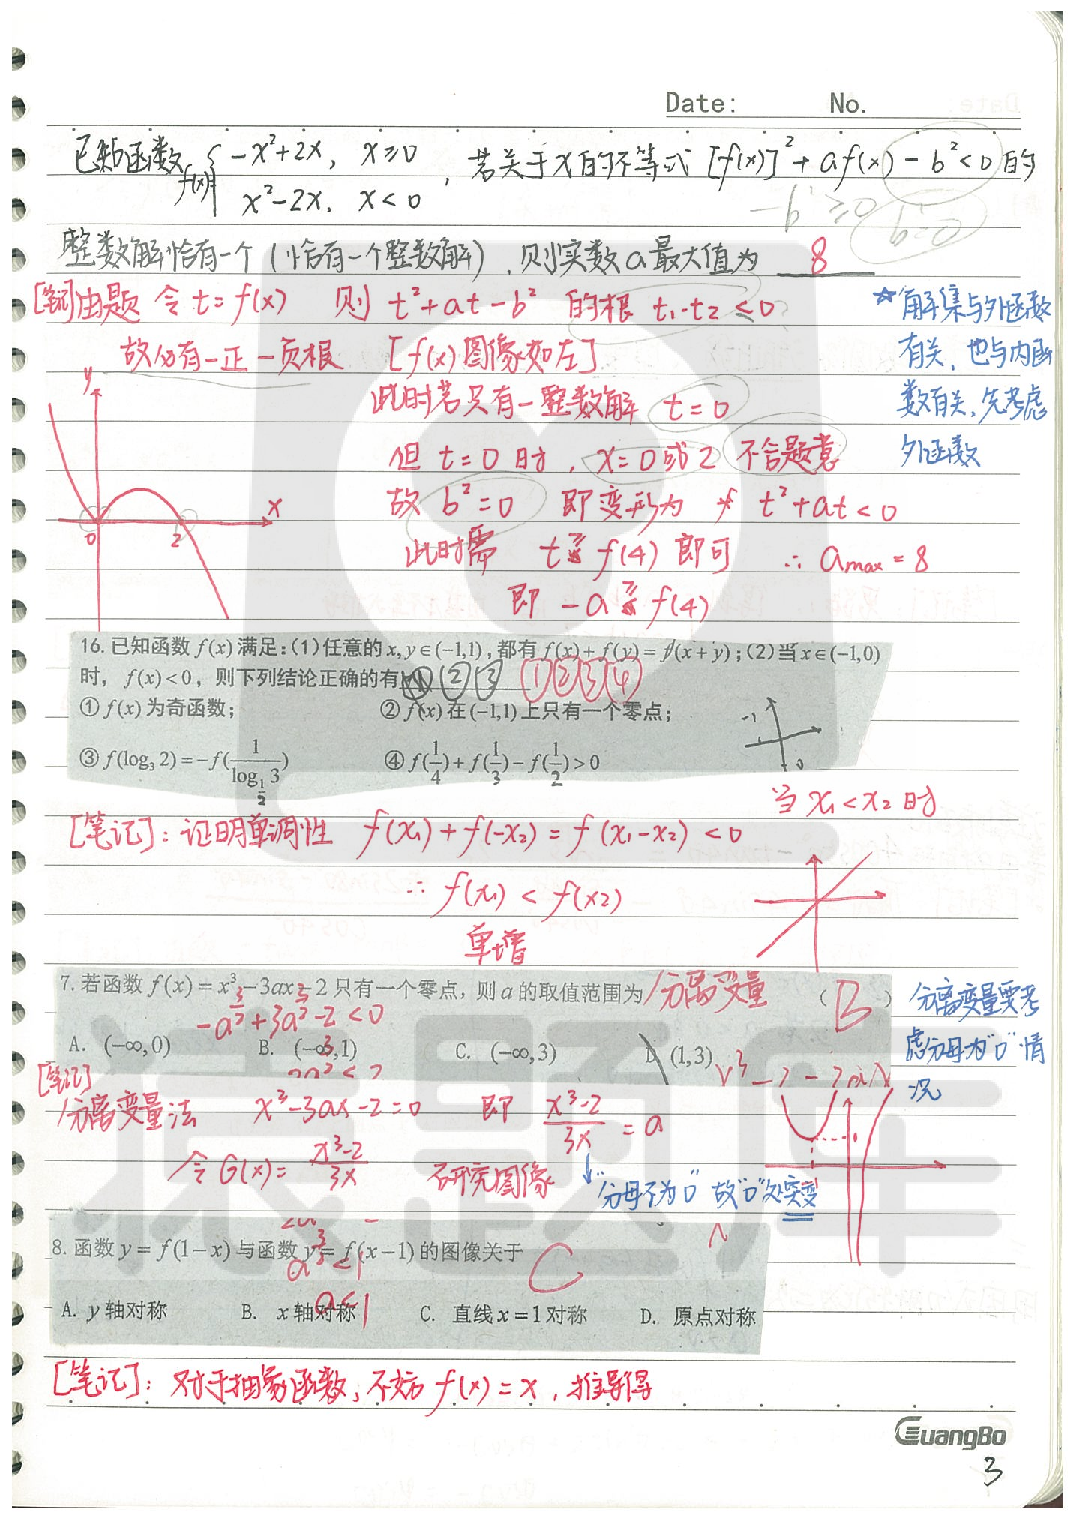 Date: No.
已知函数 f(x) { -x²+2x, x≥0
x²-2x, x<0 , 若关于x的不等式 [f(x)]²+af(x)-b²<0 的
整数解恰有一个 (恰有一个整数解), 则实数a最大值为 8
[笔记] 由题 令 t=f(x) 则 t²+at-b² 的根 t₁·t₂<0
故必有一正一负根 [f(x)图像如左]
此时若只有一整数解 t=0
但 t=0 时, x=0或2 不合题意
故 b²=0 即变形为 t²+at<0
此时需 t≥f(4) 即可 ∴ amax=8
即 -a≥f(4)
☆解集与外函数
有关, 也与内函
数有关, 先考虑
外函数
y
x
0 2
16. 已知函数 f(x) 满足: (1)任意的 x,y∈(-1,1), 都有 f(x)+f(y)=f(x+y); (2)当 x∈(-1,0)
时, f(x)<0, 则下列结论正确的有 ② ③ ①②③④
① f(x) 为奇函数; ② f(x) 在 (-1,1) 上只有一个零点;
③ f(log₃2)=-f(1/log_{1/2}3) ④ f(1/4)+f(1/3)-f(1/2)>0
当 x₁<x₂ 时
[笔记]: 证明单调性 f(x₁)+f(-x₂)=f(x₁-x₂)<0
∴ f(x₁)<f(x₂)
单增
7. 若函数 f(x)=x³-3ax-2 只有一个零点, 则 a 的取值范围为 分离变量 ( B )
A. (-∞,0) B. (-∞,1) C. (-∞,3) D. (1,3)
分离变量要考
虑分母为"0"情
况
[笔记]
分离变量法 x³-3ax-2=0 即 (x³-2)/3x=a
令 G(x)=(x³-2)/3x 研究图像
"分母不为0" 故"0"处突变
8. 函数 y=f(1-x) 与函数 y=f(x-1) 的图像关于 C
a³<1
a<1
A. y 轴对称 B. x 轴对称 C. 直线 x=1 对称 D. 原点对称
[笔记]: 对于抽象函数, 不妨 f(x)=x, 推导得
GuangBo
3
猿题库